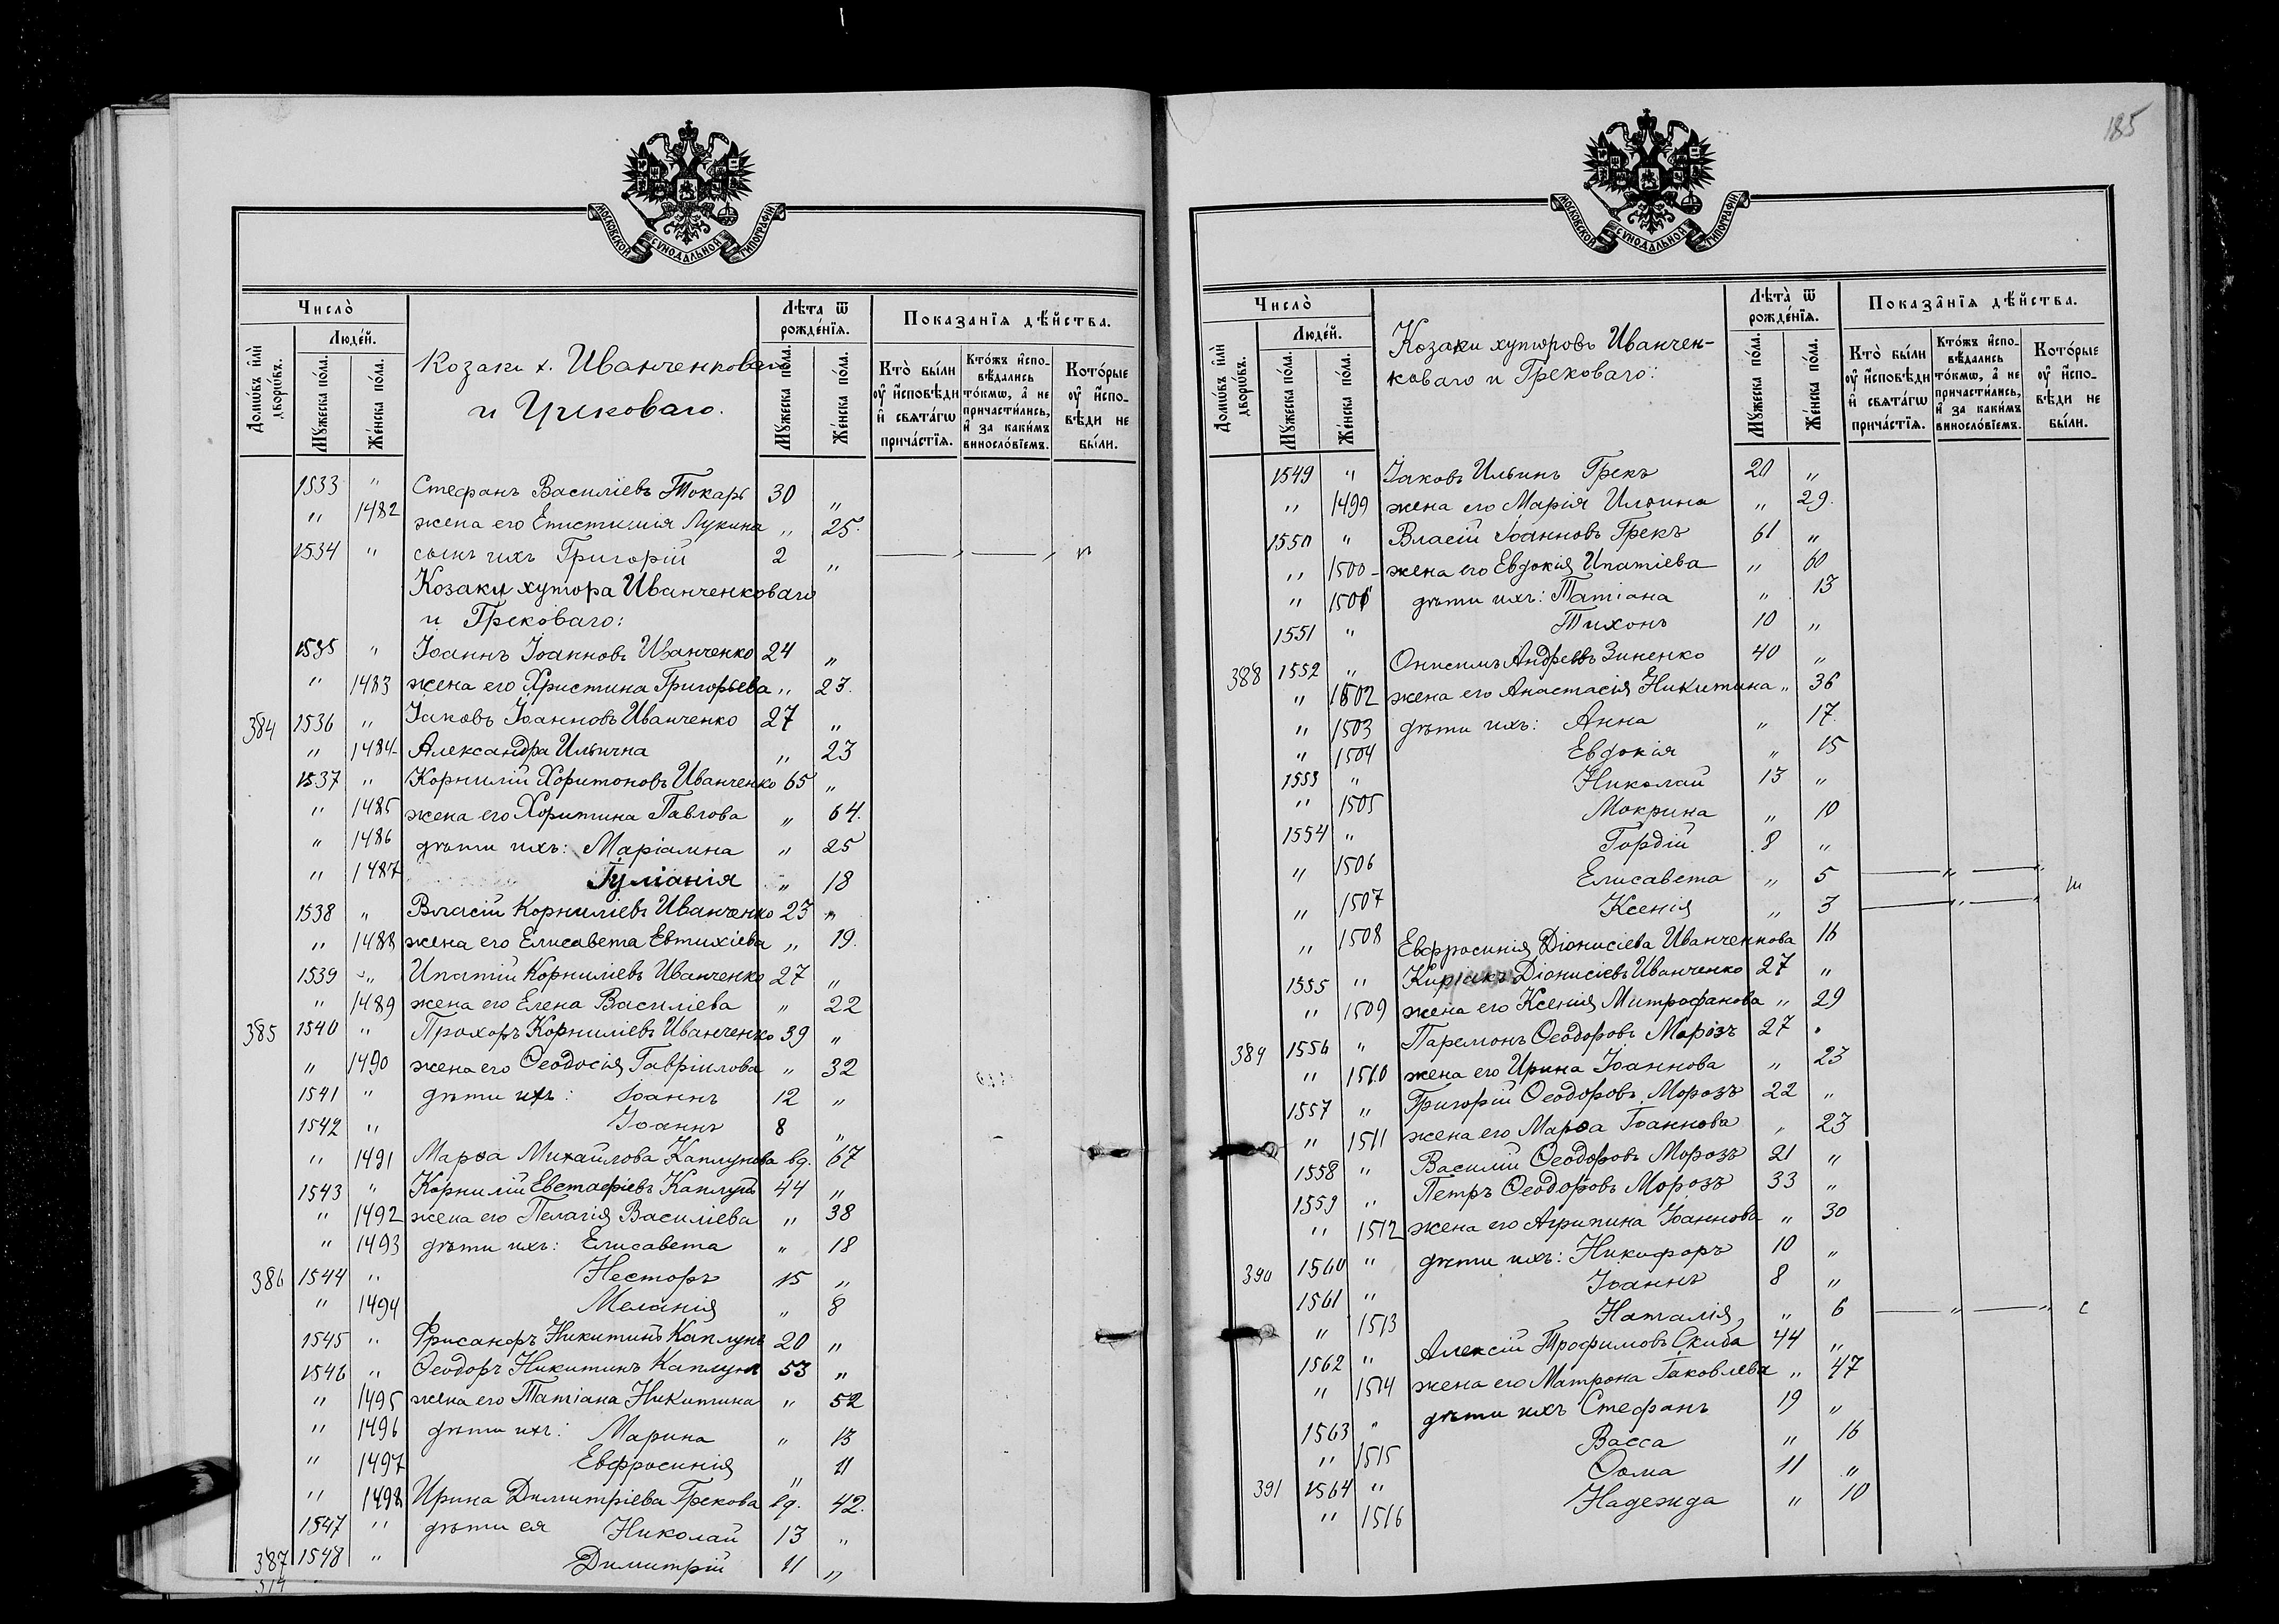 МОСКОВСКОЙ СѴНОДАЛЬНОЙ ТИПОГРАФІИ
Число̀
Домѡ́въ и҆лѝ дворѡ́въ.
Люде́й.
Мꙋ́жеска по́ла.
Же́нска по́ла.
Козаки х. Иванченковаго
и Грековаго.
Лѣ́та ѿ рожде́нїя.
Мꙋ́жеска по́ла.
Же́нска по́ла.
Показа́нїя дѣ́йства.
Кто̀ бы́ли ᲂу҆ и҆сповѣ́ди и҆ свята́гѡ прича́стїя.
Кто́жъ и҆спо-вѣ́дались то́кмѡ, а҆ не причасти́лись, и҆ за каки́мъ винослові́емъ.
Кото́рые ᲂу҆ и҆спо-вѣ́ди не бы́ли.
1533 " Стефанъ Василіевъ Токарь 30 "
" 1482 жена его Епистимія Лукина " 25.
1534 " сынъ ихъ Григорій 2 "
Козаки хутора Иванченковаго
и Грековаго:
1535 " Іоаннъ Іоанновъ Иванченко 24 "
" 1483 жена его Христина Григорьева " 23.
384 1536 " Іаковъ Іоанновъ Иванченко 27 "
" 1484 Александра Ильична " 23
1537 " Корнилій Харитоновъ Иванченко 65 "
" 1485 жена его Харитина Павлова " 64.
" 1486 дѣти ихъ: Маріамна " 25
" 1487 Іуліанія " 18
1538 " Власій Корниліевъ Иванченко 23 "
" 1488 жена его Елисавета Евтихіева " 19.
1539 " Ипатій Корниліевъ Иванченко 27 "
" 1489 жена его Елена Василіева " 22
385 1540 " Прохоръ Корниліевъ Иванченко 39 "
" 1490 жена его Ѳеодосія Гавріилова " 32
1541 " дѣти ихъ: Іоаннъ 12 "
1542 " Іоаннъ 8 "
" 1491 Марѳа Михайлова Каплунова вд. 67
1543 " Корнилій Евстафіевъ Каплунъ 44 "
" 1492 жена его Пелагія Василіева " 38
" 1493 дѣти ихъ: Елисавета " 18
386 1544 " Несторъ 15 "
" 1494 Меланія " 8
1545 " Никитинъ Каплунъ 20 "
1546 " Ѳеодоръ Никитинъ Каплунъ 53 "
" 1495 жена его Татіана Никитина " 52
" 1496 дѣти ихъ: Марина " 13
" 1497 Евфросинія " 11
" 1498 Ирина Димитріева Грекова вд. 42.
1547 " дѣти ея Николай 13 "
387 1548 " Димитрій 11 "
185
МОСКОВСКОЙ СѴНОДАЛЬНОЙ ТИПОГРАФІИ
Число̀
Домѡ́въ и҆лѝ дворѡ́въ.
Люде́й.
Мꙋ́жеска по́ла.
Же́нска по́ла.
Козаки хуторовъ Иванчен-
коваго и Грековаго:
Лѣта̀ ѿ рожде́нїя.
Мꙋ́жеска по́ла.
Же́нска по́ла.
Показа́нїя дѣ́йства.
Кто̀ бы́ли ᲂу҆ и҆сповѣ́ди и҆ свята́гѡ прича́стїя.
Кто́жъ и҆спо-вѣ́дались то́кмѡ, а҆ не причасти́лись, и҆ за каки́мъ винослові́емъ.
Кото́рые ᲂу҆ и҆спо-вѣ́ди не бы́ли.
1549 " Іаковъ Ильинъ Грекъ 20 "
" 1499 жена его Марія Ильина " 29.
1550 " Власій Іоанновъ Грекъ 61 "
" 1500 жена его Евдокія Ипатіева " 60
" 1501 дѣти ихъ: Татіана " 13
1551 " Тихонъ 10 "
388 1552 " Онисимъ Андреевъ Зиненко 40 "
" 1502 жена его Анастасія Никитина " 36
" 1503 дѣти ихъ: Анна " 17.
" 1504 Евдокія " 15
1553 " Николай 13 "
" 1505 Мокрина " 10
1554 " Гордій 8 "
" 1506 Елисавета " 5
" 1507 Ксенія " 3
" 1508 Евфросинія Діонисіева Иванченкова 16
1555 " Киріакъ Діонисіевъ Иванченко 27 "
" 1509 жена его Ксенія Митрофанова " 29
389 1556 " Парамонъ Ѳеодоровъ Морозъ 27 "
" 1510 жена его Ирина Іоаннова " 23
1557 " Григорій Ѳеодоровъ Морозъ 22 "
" 1511 жена его Марѳа Іоаннова " 23
1558 " Василій Ѳеодоровъ Морозъ 21 "
1559 " Петръ Ѳеодоровъ Морозъ 33 "
" 1512 жена его Агрипина Іоаннова " 30
390 1560 " дѣти ихъ: Никифоръ 10 "
1561 " Іоаннъ 8 "
" 1513 Наталія " 6
1562 " Алексій Трофимовъ Скиба 44 "
" 1514 жена его Матрона Іаковлева " 47
1563 " дѣти ихъ Стефанъ 19 "
" 1515 Васса " 16
391 1564 " Ѳома 11 "
" 1516 Надежда " 10